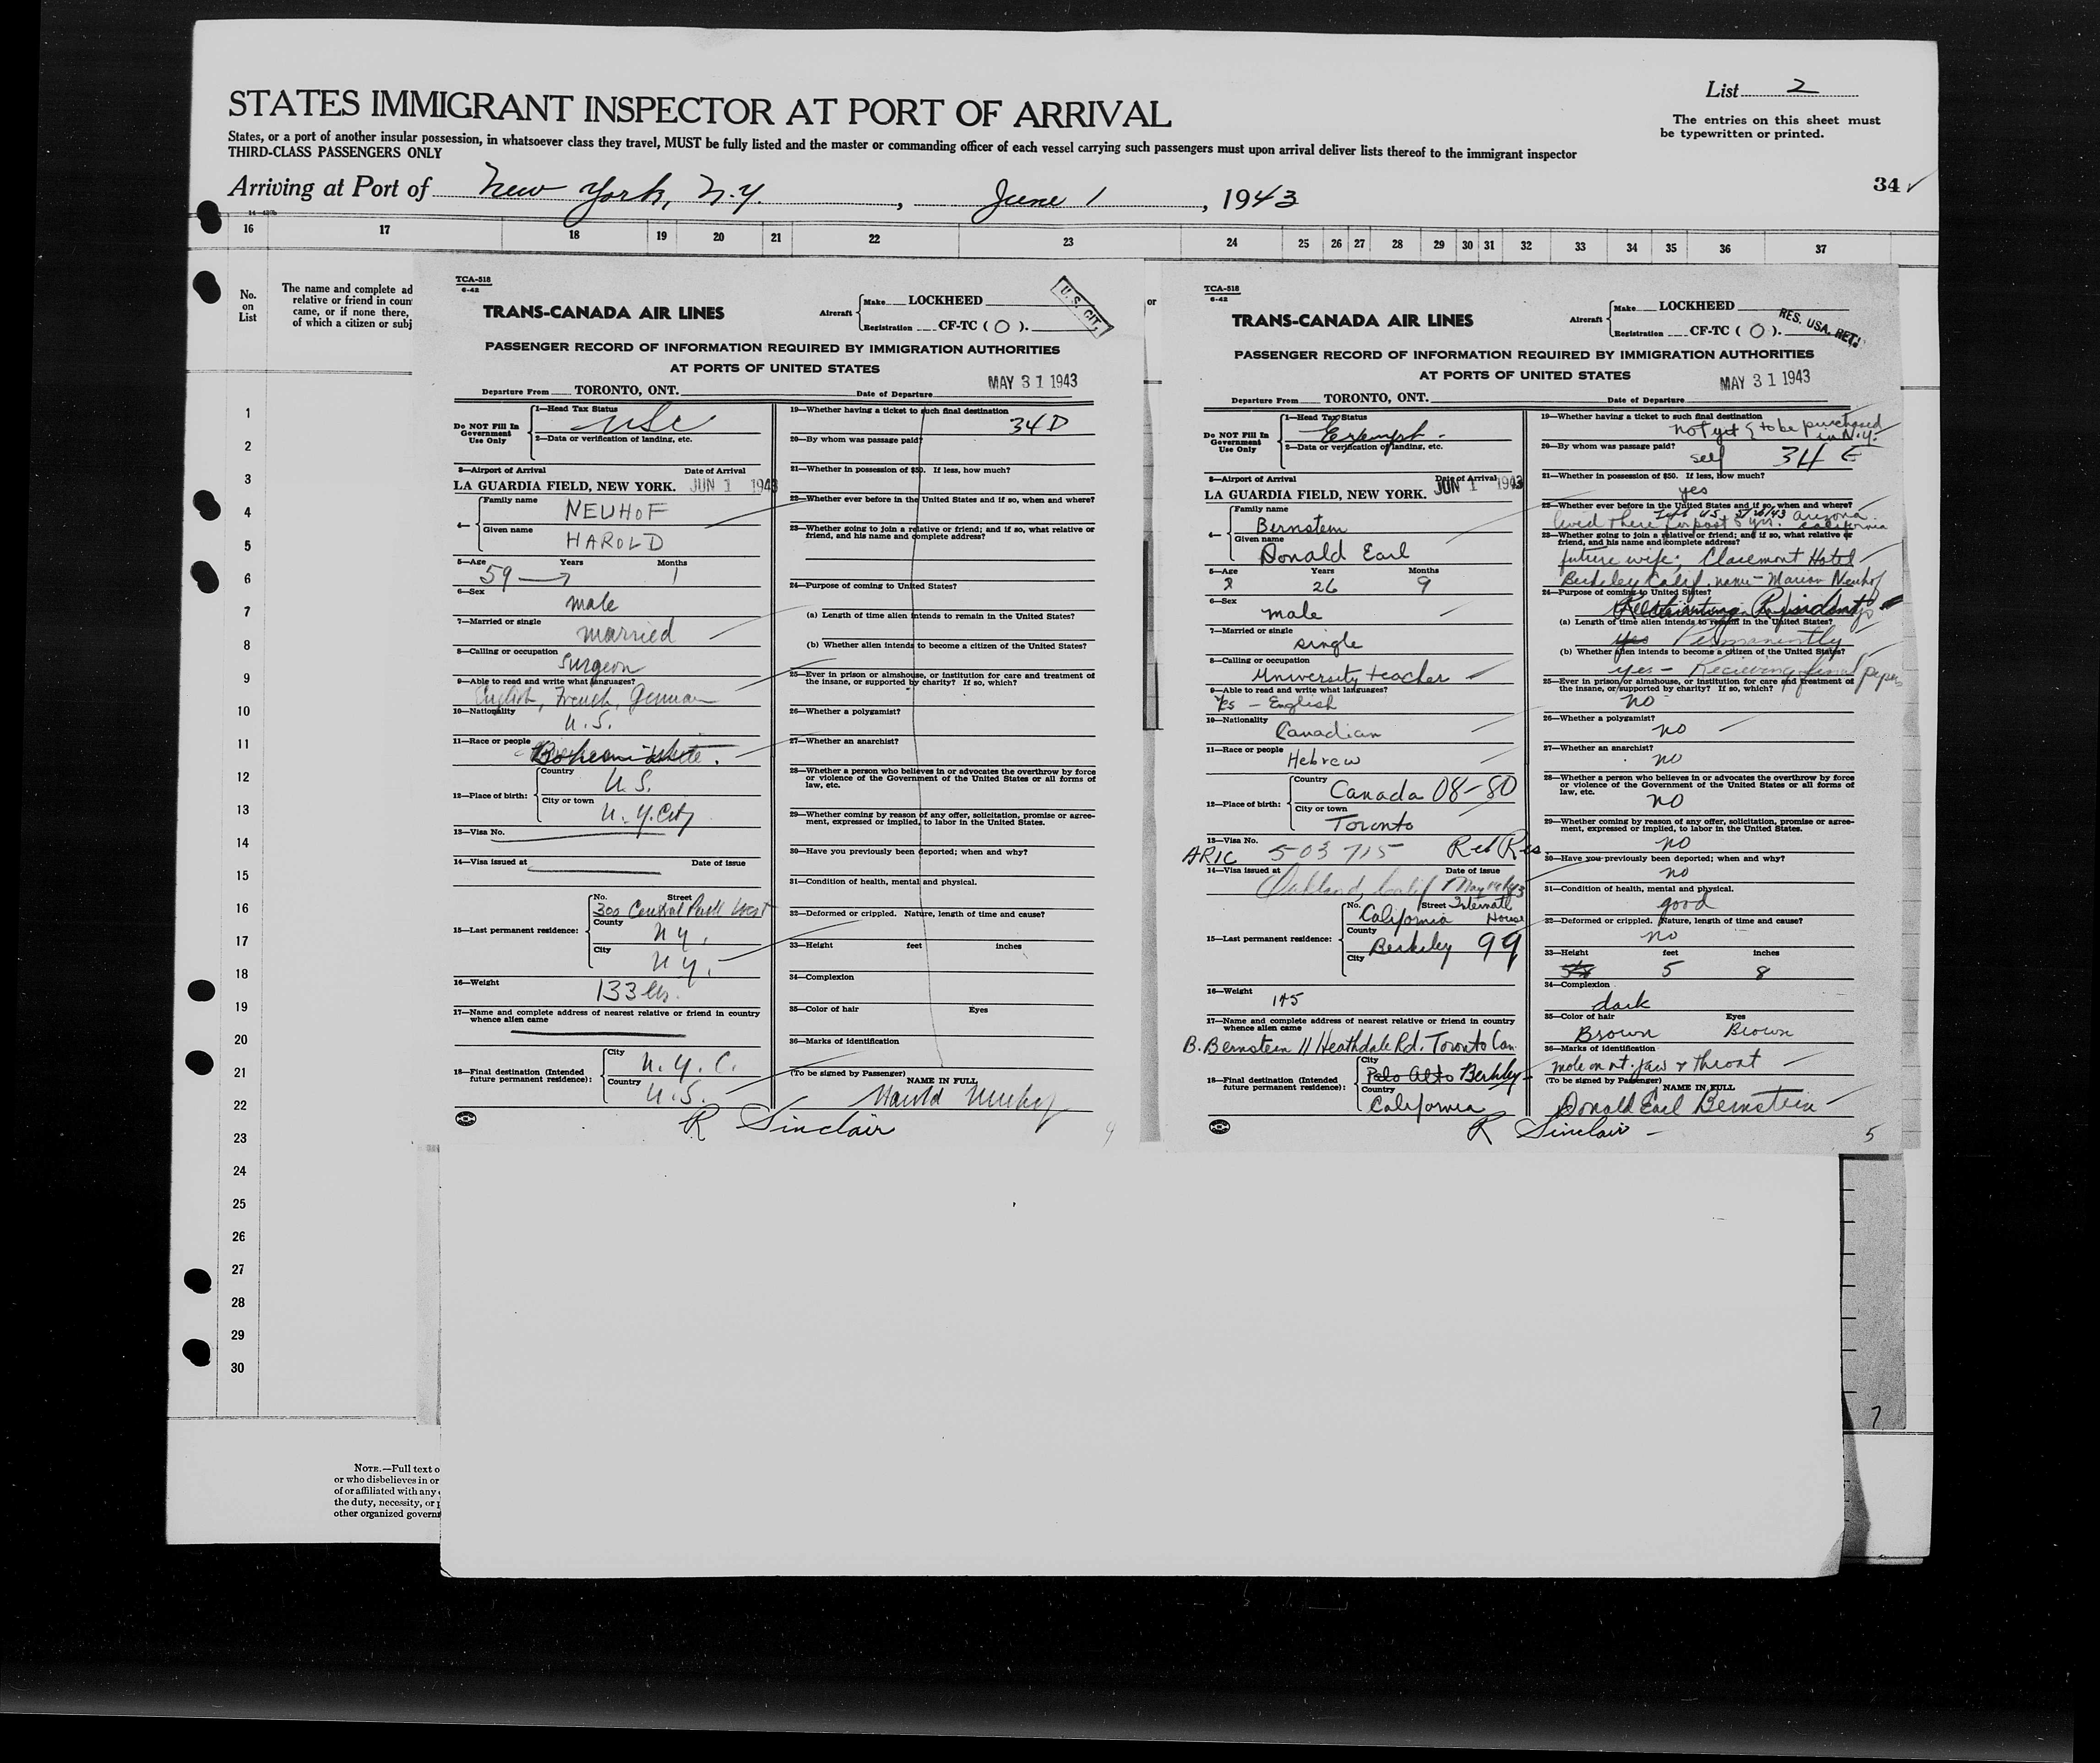 STATES IMMIGRANT INSPECTOR AT PORT OF ARRIVAL
List 2
The entries on this sheet must
be typewritten or printed.
States, or a port of another insular possession, in whatsoever class they travel, MUST be fully listed and the master or commanding officer of each vessel carrying such passengers must upon arrival deliver lists thereof to the immigrant inspector
THIRD-CLASS PASSENGERS ONLY
Arriving at Port of New York, N.Y. , June 1 , 1943
34 ✓
16 17 18 19 20 21 22 23 24 25 26 27 28 29 30 31 32 33 34 35 36 37
No.
on
List
The name and complete ad
relative or friend in coun
came, or if none there,
of which a citizen or subj
or
1
2
3
4
5
6
7
8
9
10
11
12
13
14
15
16
17
18
19
20
21
22
23
24
25
26
27
28
29
30
TCA-518
6-42
TRANS-CANADA AIR LINES
Aircraft Make LOCKHEED
Registration CF-TC ( O ).
U. S. CIT.
PASSENGER RECORD OF INFORMATION REQUIRED BY IMMIGRATION AUTHORITIES
AT PORTS OF UNITED STATES
MAY 31 1943
Departure From TORONTO, ONT. Date of Departure
Do NOT Fill In
Government
Use Only
1—Head Tax Status
USC
2—Data or verification of landing, etc.
3—Airport of Arrival Date of Arrival
LA GUARDIA FIELD, NEW YORK. JUN 1 1943
4—
Family name
NEUHOF
Given name
HAROLD
5—Age Years Months
59 1
6—Sex
male
7—Married or single
married
8—Calling or occupation
Surgeon
9—Able to read and write what languages?
English, French, German
10—Nationality
U.S.
11—Race or people
12—Place of birth:
Country
U.S.
City or town
N.Y. City
13—Visa No.
14—Visa issued at Date of issue
15—Last permanent residence:
No. Street
300 Central Park West
County
N.Y.
City
N.Y.
16—Weight
133 lbs.
17—Name and complete address of nearest relative or friend in country
whence alien came
18—Final destination (Intended
future permanent residence):
City
N.Y.C.
Country
U.S.
19—Whether having a ticket to such final destination
34D
20—By whom was passage paid?
21—Whether in possession of $50. If less, how much?
22—Whether ever before in the United States and if so, when and where?
23—Whether going to join a relative or friend; and if so, what relative or
friend, and his name and complete address?
24—Purpose of coming to United States?
(a) Length of time alien intends to remain in the United States?
(b) Whether alien intends to become a citizen of the United States?
25—Ever in prison or almshouse, or institution for care and treatment of
the insane, or supported by charity? If so, which?
26—Whether a polygamist?
27—Whether an anarchist?
28—Whether a person who believes in or advocates the overthrow by force
or violence of the Government of the United States or all forms of
law, etc.
29—Whether coming by reason of any offer, solicitation, promise or agree-
ment, expressed or implied, to labor in the United States.
30—Have you previously been deported; when and why?
31—Condition of health, mental and physical.
32—Deformed or crippled. Nature, length of time and cause?
33—Height feet inches
34—Complexion
35—Color of hair Eyes
36—Marks of identification
(To be signed by Passenger)
NAME IN FULL
Harold Neuhof
R Sinclair
4
TCA-518
6-42
TRANS-CANADA AIR LINES
Aircraft Make LOCKHEED
Registration CF-TC ( O ).
RES. USA. RET.
PASSENGER RECORD OF INFORMATION REQUIRED BY IMMIGRATION AUTHORITIES
AT PORTS OF UNITED STATES
MAY 31 1943
Departure From TORONTO, ONT. Date of Departure
Do NOT Fill In
Government
Use Only
1—Head Tax Status
Exempt -
2—Data or verification of landing, etc.
3—Airport of Arrival Date of Arrival
LA GUARDIA FIELD, NEW YORK. JUN 1 1943
4—
Family name
Bernstein
Given name
Donald Earl
5—Age Years Months
26 9
6—Sex
male
7—Married or single
single
8—Calling or occupation
University teacher
9—Able to read and write what languages?
Yes - English
10—Nationality
Canadian
11—Race or people
Hebrew
12—Place of birth:
Country
Canada 08-80
City or town
Toronto
13—Visa No.
ARIC 503715 Ret Res
14—Visa issued at Date of issue
Oakland, Calif May 43
15—Last permanent residence:
No. Street Internatl
California House
County
Berkeley 99
City
16—Weight
145
17—Name and complete address of nearest relative or friend in country
whence alien came
B. Bernstein 11 Heathdale Rd. Toronto Can.
18—Final destination (Intended
future permanent residence):
City
Palo Alto Berkley
Country
California
19—Whether having a ticket to such final destination
not yet to be purchased
in N.Y.
20—By whom was passage paid?
self 34 E
21—Whether in possession of $50. If less, how much?
yes
22—Whether ever before in the United States and if so, when and where?
Left U.S. Arizona
lived there for past yrs. California
23—Whether going to join a relative or friend; and if so, what relative or
friend, and his name and complete address?
future wife; Claremont Hotel
Berkeley Calif. name - Marion Neuhof
24—Purpose of coming to United States?
Resident
(a) Length of time alien intends to remain in the United States?
yes Permanently
(b) Whether alien intends to become a citizen of the United States?
yes - Recieving final papers
25—Ever in prison or almshouse, or institution for care and treatment of
the insane, or supported by charity? If so, which?
no
26—Whether a polygamist?
no
27—Whether an anarchist?
no
28—Whether a person who believes in or advocates the overthrow by force
or violence of the Government of the United States or all forms of
law, etc.
no
29—Whether coming by reason of any offer, solicitation, promise or agree-
ment, expressed or implied, to labor in the United States.
no
30—Have you previously been deported; when and why?
no
31—Condition of health, mental and physical.
good
32—Deformed or crippled. Nature, length of time and cause?
no
33—Height feet inches
5 8
34—Complexion
dark
35—Color of hair Eyes
Brown Brown
36—Marks of identification
mole on rt. jaw & throat
(To be signed by Passenger)
NAME IN FULL
Donald Earl Bernstein
R Sinclair
5
7
NOTE.—Full text o
or who disbelieves in or
of or affiliated with any
the duty, necessity, or p
other organized governm